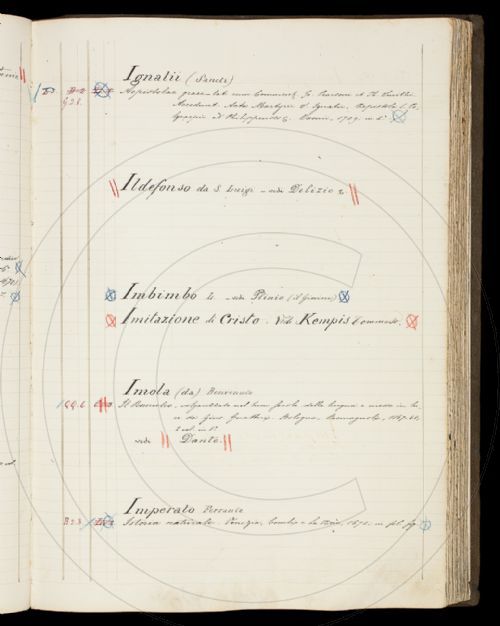 Ignatii (Sancti)
G.2.8.
Aepistolae graec-lat cum Comment. Pearsoni et Th. Smithi.
Accedunt. Acta Martyr. S. Ignatii, Aepistola S. Po.
ad Philippenses. Oxonii, 1709. in 8°
Ildefonso da S. Luigi - vedi Delizie
Imbimbo - vedi Plinio (il Giovine)
Imitazione di Cristo. Vedi Kempis Tommaso.
Imola (da) Benvenuto
Il Romuleo, volgarizzato nel buon secolo della lingua e messo in lu.
ce da Gius. Guatteri. Bologna, Romagnoli, 1867-68,
2 vol. in 8°
vedi Dante.
Imperato Ferrante
Istoria naturale. Venezia, Combi e La Noù, 1672. in fol. fig.